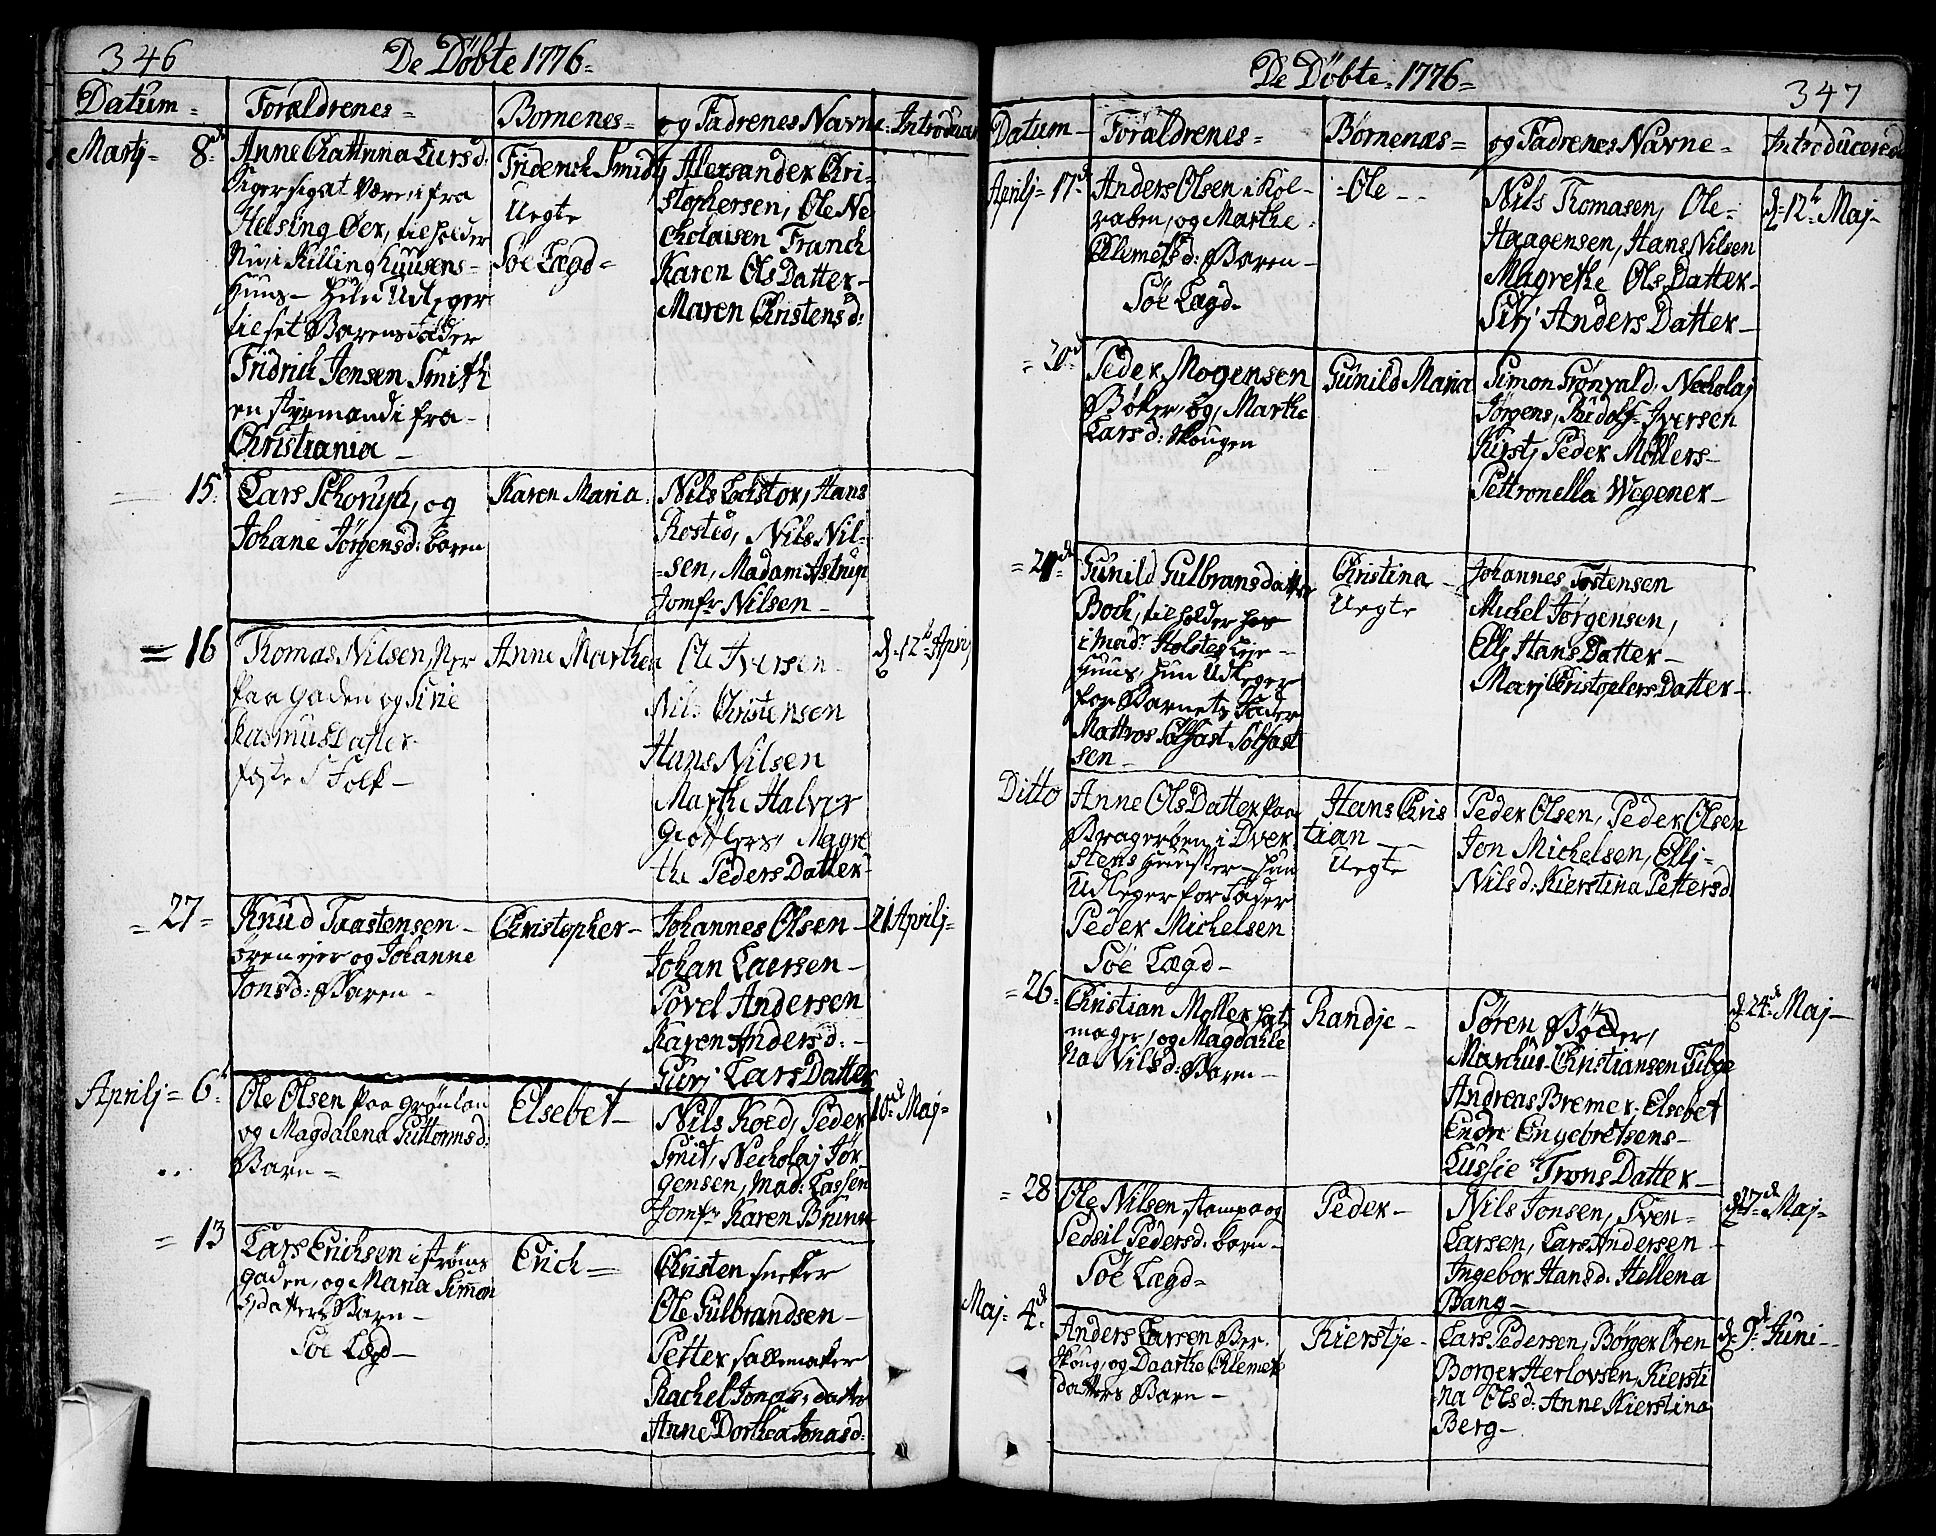 346
De Döbte 1776=
Datum=
Forældrenes=
Bornenes=
og Fadrenes Navne
Introduce
Martj= 8de
Anne Cattrina Lars d:
Siger sig at være i fra
Helsing Øer, tilholder
Nu, i Killinghuusens=
Huus= hun Udleger
til sit Barens fader
Fridrich Jensen Smith
en styrmand i fra=
Christiania
Friderich Smidt
Uegte
Søe Lægd=
Alexsander Chri=
stophersen, Ole Ne
cholaisen Franch
Karen Ols Datter
Maren Christens d:
= 15.
Lars Schorup, og
Johane Jørgensd: baren
Karen Maria
Nils Lochstor, Hans
Rosted, Nils Nil=
=sen, Madam Astrup
Jomfr Nilsen
= 16
Thomas Nilsen, Ner
paa gaden og Sirie
Rasmus Datter
Folk
Anne Marthea
Ole Iversen
Nils Christensen
Hans Nilsen
Marthe Halvor
Giøtlers, Magre
the Peders Datter
d. 12te April
= 27=
Knud Traastensen
ørenejer og Johanne
Jonsd: Baren
Christopher
Johannes Olsen
Johan Laersen
Povel Andersen
Karen Andersd:
Gurj Lars Datter
21 Aprilj=
Aprilj= 6t
Ole Olsen paa Grønlan
og Magdalena Guttormsd:
Barn=
Elsebet
Nils Koed, Peder
Smit, Necholaj Jør
gensen, Mad: Lassen
Jomfr Karen Brun
10de Maj=
= 13
Lars Erichsen i strøms
gaden, og Maria Simon
sdatters Barn
Søe Lægd
Erich=
Christen sneker
Ole Gulbrandsen
Petter sallemaker
Rachel Jonas, datter
Anne Dorthea Jonasd:
De Döbte. 1776=
347
Datum
Forældrenes=
Børnenæs=
og Fadrenes Navne=
Introducerede
Aprilj= 17d
Anders Olsen i Kol=
raaben, og Marthe
Clemets d: Baren
Søe Lægd
=Ole
Nils Thomasen, Ole=
Haagensen, Hans Nilsen
Magrethe Ols Datter
Sirj Anders Datter
d=12te Maj
= 20d
Peder Mogensen
Bøker, og Marthe
Lars d: skougen
Gunild Maria
Simon Grønvald, Necholaj
Jørgens, Rudolf Iversen
Kirstj Peder Møllers
Pettronella Wegener
= 21de
Gunild Gulbransdatter
Bock, tilholder her
i Madr Holsted Leje
Huus, hun Udleger
for Barnets Fader
Mattros Solfast Solfast
sen
Christina
Uegte
Johannes Tostensen
Michel Jørgensen,
Elli Hans Datter
Marj Christophers Datter
Ditto
Anne Ols Datter paa
Bragerøen i Dver
stens
Udleger for Fader
Peder Michelsen
Søe Lægd
Hans Chris
tian
Uegte
Peder Olsen, Peder Olsen
Jon Michelsen, Ellj=
Nilsd: Kierstina Pettersd
= 26=
Christian Møller hat
mager, og Magdale
na Nilsd: Baren
Randje
Søren Bøder,
Marchus Christiansen Tilge
Andreas Bremer. Elsebet
Endre Engebretsens
Lussie Trons Datter
d=24de Maj
= 28
Ole Nilsen stampa og
Pedsil Pedersd. barn
Søe Lægd=
Peder
Nils Jonsen, Sven
Larsen, Lars Andersen
Ingebor Hansd: Hellena
Bang
d27de Maj
Maj= 4de
Anders Larsen Ber
skoug, og Daarthe Clemet
datters Barn
Kierstje
Lars Pedersen, Børger Oren
Borger Herlovsen, Kiersti
na Olsd: Anne Kierstina
Berg
d. 9de Juni